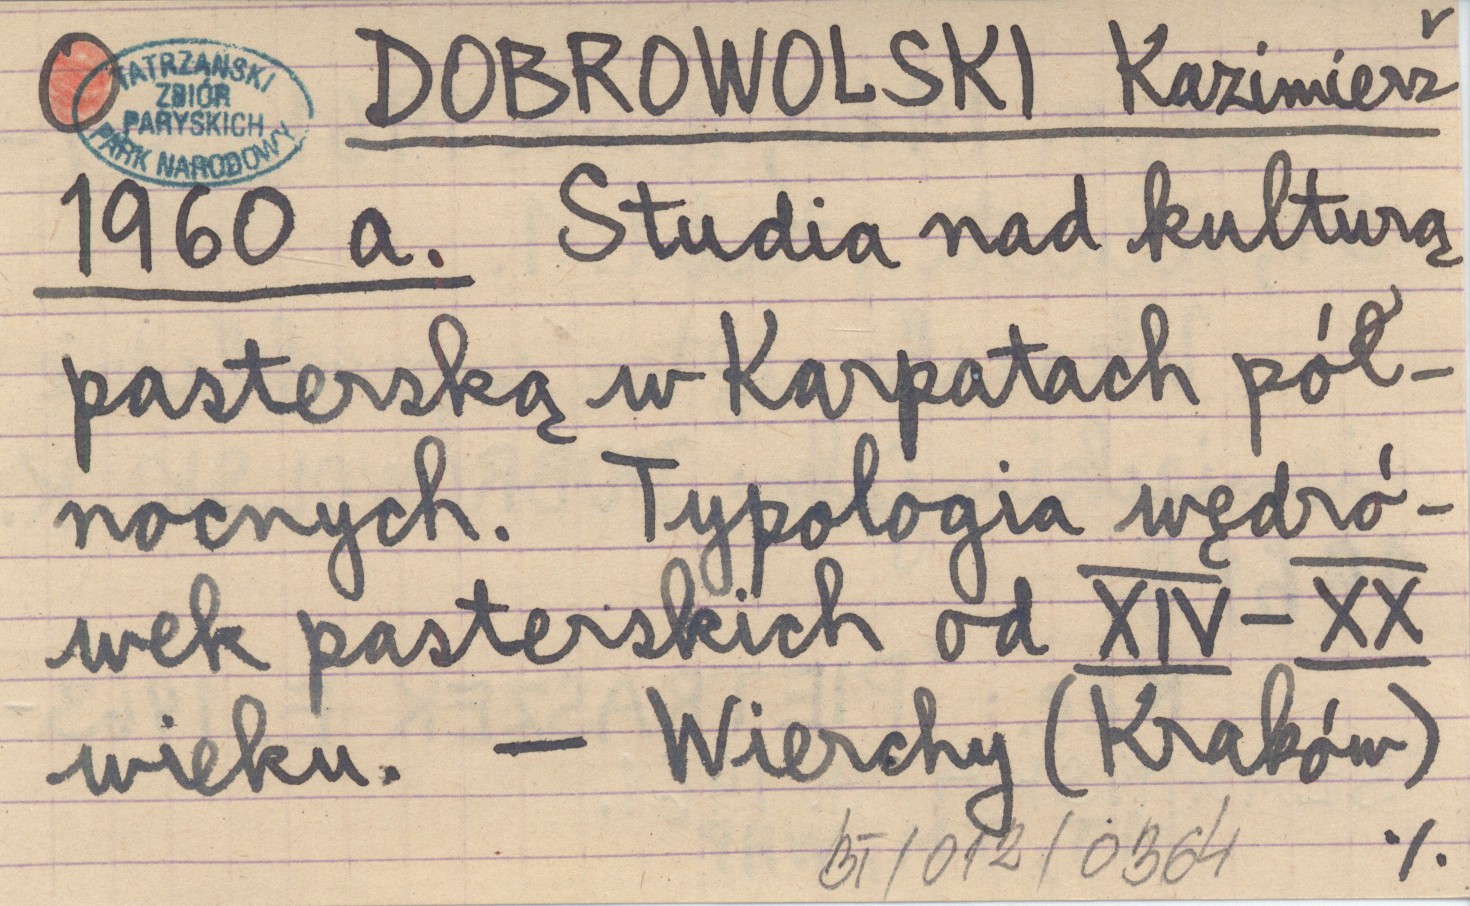 TATRZAŃSKI
ZBIÓR
PARYSKICH
PARK NARODOWY
DOBROWOLSKI Kazimierz
1960 a. Studia nad kulturą
pasterską w Karpatach pół-
nocnych. Typologia wędró-
wek pasterskich od XIV-XX
wieku. — Wierchy (Kraków)
BT/012/0364
./.